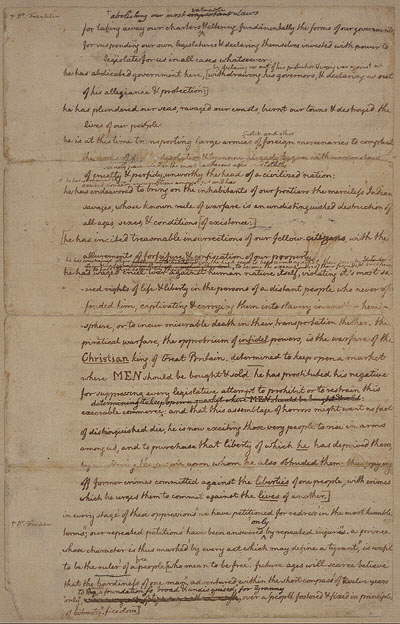 * Dr. Franklin
abolishing our most important valuable Laws
for taking away our charters & altering fundamentally the forms of our governments
for suspending our own legislatures & declaring themselves invested with power to
legislate for us in all cases whatsoever.
he has abdicated government here, [withdrawing his governors, & declaring us out
of his allegiance & protection]
he has plundered our seas, ravaged our coasts, burnt our towns & destroyed the
lives of our people
he is at this time transporting large armies of foreign mercenaries to compleat
the works of death desolation & tyranny already begun with circumstances
of cruelty & perfidy unworthy the head of a civilized nation:
he has endeavored to bring on the inhabitants of our frontiers the merciless Indian
savages, whose known rule of warfare is an undistinguished destruction of
all ages, sexes, & conditions [of existence:]
[he has incited treasonable insurrections of our fellow citizens, with the
allurements of forfeiture & confiscation of our property.
he has waged cruel war against human nature itself, violating it's most sa-
-cred rights of life & liberty in the persons of a distant people who never of-
fended him, captivating & carrying them into slavery in another hemi-
-sphere, or to incur miserable death in their transportation thither. this
piratical warfare, the opprobrium of infidel powers, is the warfare of the
Christian king of Great Britain. determined to keep open a market
where MEN should be bought & sold he has prostituted his negative
for suppressing every legislative attempt to prohibit or to restrain this
determining to keep open a market where MEN should be bought & sold
execrable commerce: and that this assemblage of horrors might want no fact
of distinguished die, he is now exciting those very people to rise in arms
among us, and to purchase that liberty of which he has deprived them,
by murdering the people upon whom he also obtruded them: thus paying
off former crimes committed against the liberties of one people, with crimes
which he urges them to commit against the lives of another.]
in every stage of these oppressions we have petitioned for redress in the most humble
only
terms; our repeated petitions have been answered by repeated injuries. a prince
* Dr. Franklin
whose character is thus marked by every act which may define a tyrant, is unfit
to be the ruler of a people [who mean to be free. future ages will scarce believe
that the hardiness of one man, adventured within the short compass of twelve years
to lay a foundation so broad & undisguised, for tyranny
only over a people fostered & fixed in principles
of freedom]